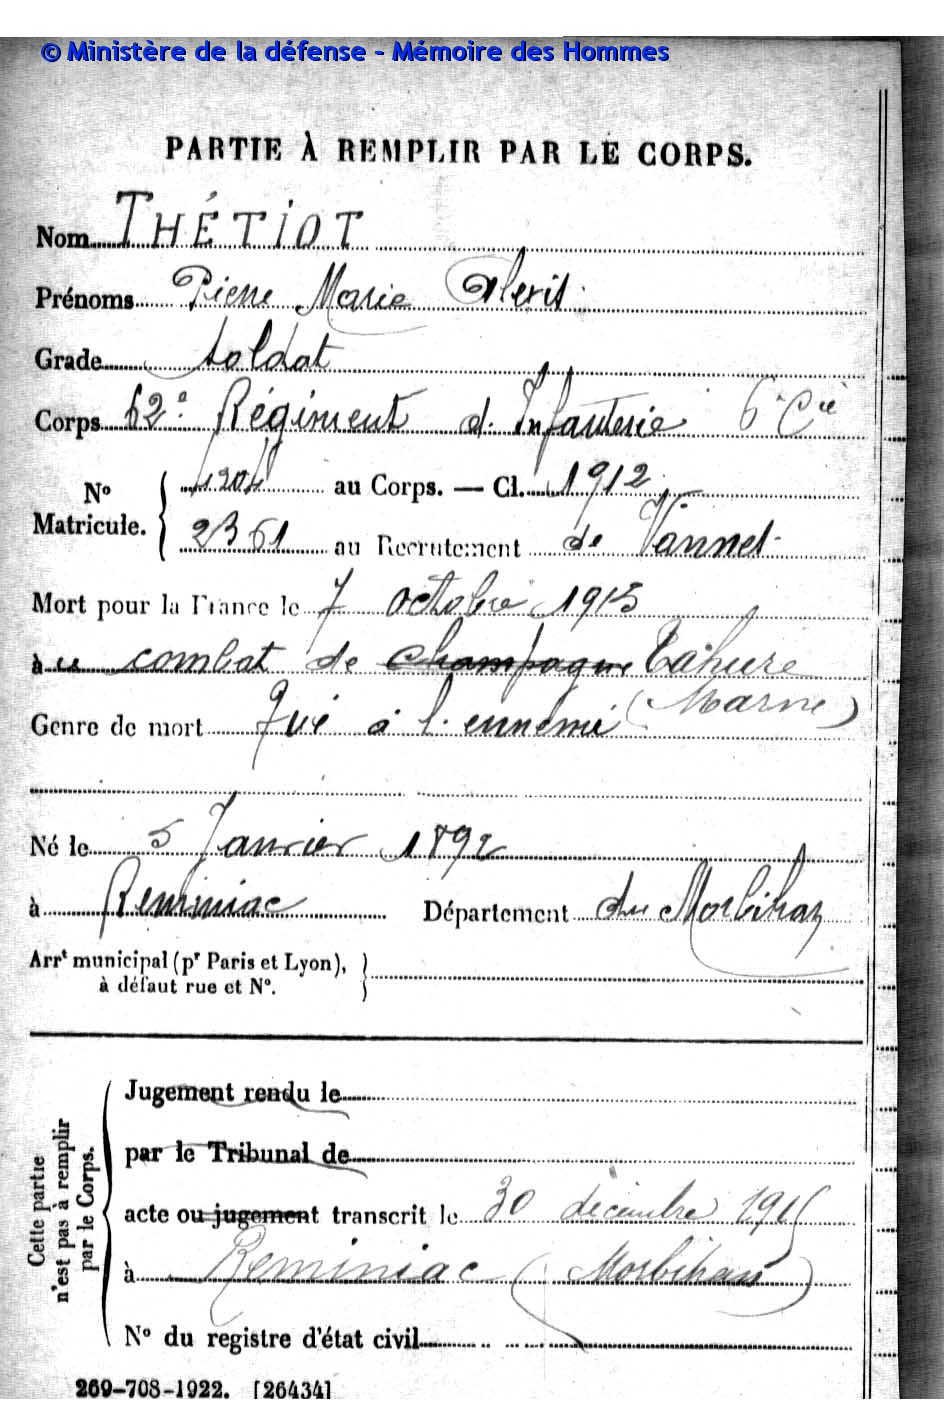 © Ministère de la défense - Mémoire des Hommes
PARTIE À REMPLIR PAR LE CORPS.
Nom THÉTIOT
Prénoms Pierre Marie Alexis
Grade soldat
Corps 62e Régiment d'Infanterie 6e Cie
No Matricule. { 4204 au Corps. — Cl. 1912
2361 au Recrutement de Vannes
Mort pour la France le 7 octobre 1915
à u combat de Champagne Tahure
(Marne)
Genre de mort Tué à l'ennemi
Né le 5 Janvier 1892
à Réminiac Département du Morbihan
Arrt municipal (pr Paris et Lyon),
à défaut rue et No. }
Cette partie n'est pas à remplir par le Corps.
Jugement rendu le
par le Tribunal de
acte ou jugement transcrit le 30 décembre 1915
à Réminiac (Morbihan)
No du registre d'état civil
269-708-1922. [26434]